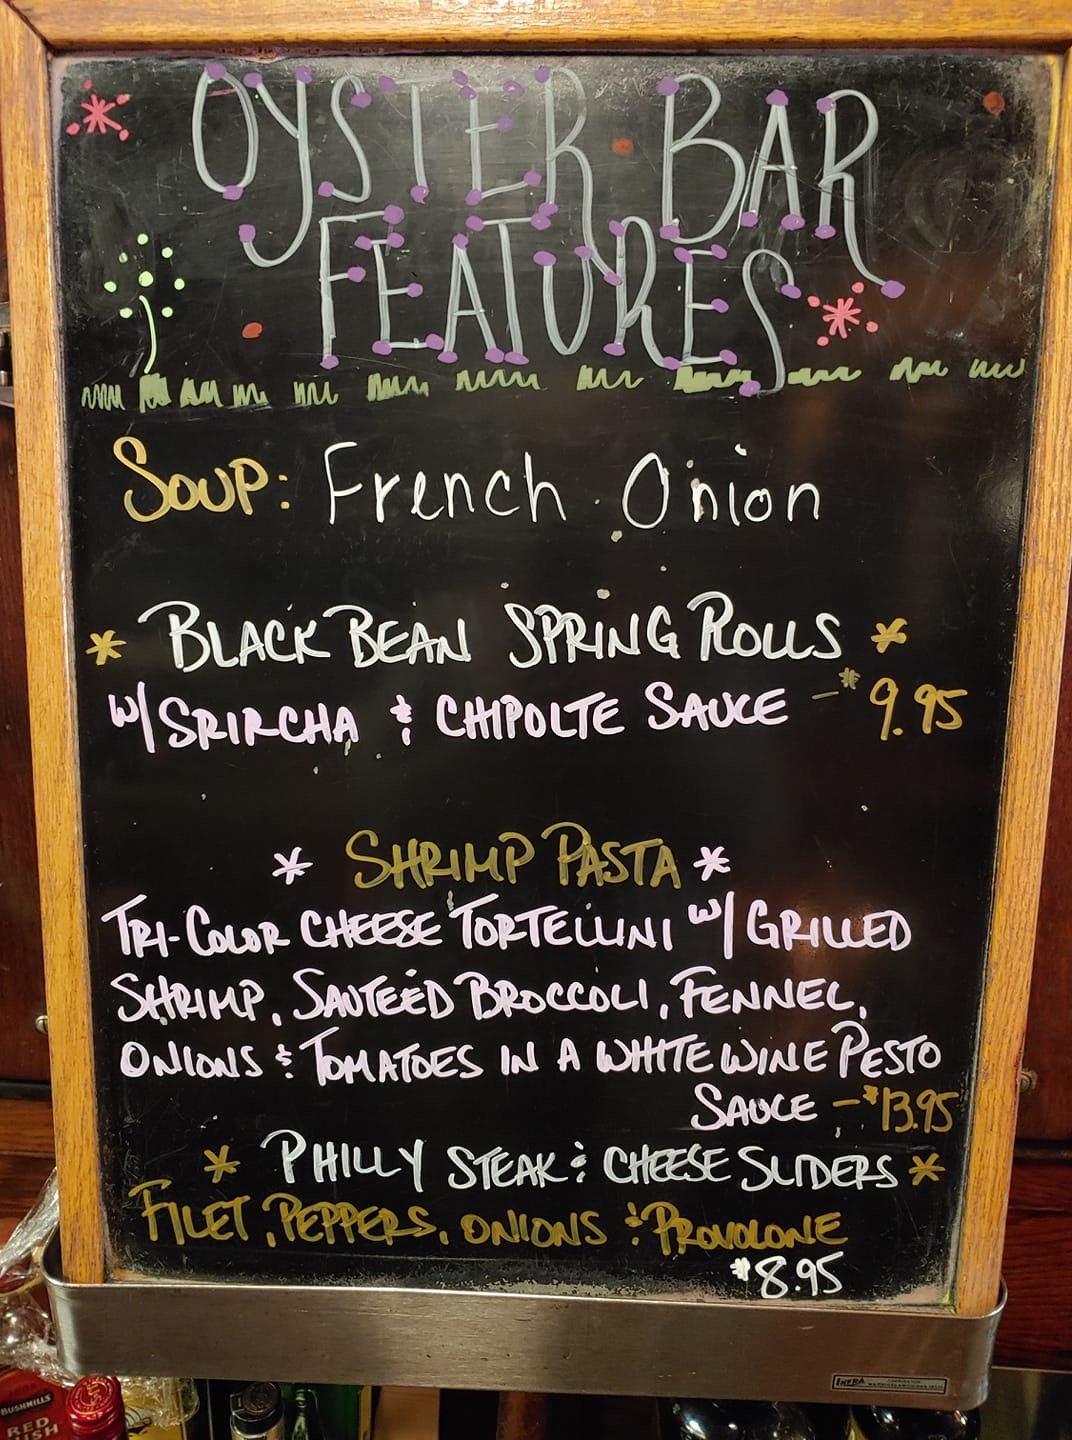 OYSTER BAR
FEATURES
SOUP: French Onion
* BLACK BEAN SPRING ROLLS *
W/ SRIRCHA & CHIPOLTE SAUCE - $9.95
* SHRIMP PASTA *
TRI-COLOR CHEESE TORTELLINI W/ GRILLED
SHRIMP, SAUTEED BROCCOLI, FENNEL,
ONIONS & TOMATOES IN A WHITE WINE PESTO
SAUCE - $13.95
* PHILLY STEAK & CHEESE SLIDERS *
FILET, PEPPERS, ONIONS & PROVOLONE
$8.95
INFRA
BUSHMILLS
RED